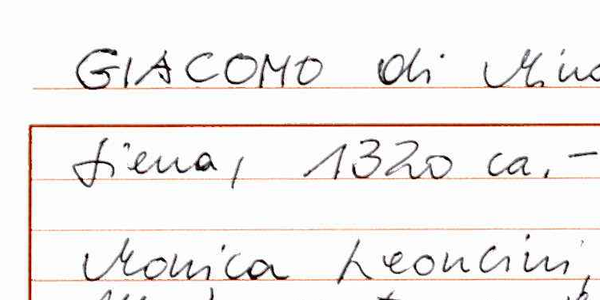 GIACOMO di
Siena, 1320 ca. -
Monica Leoncini,